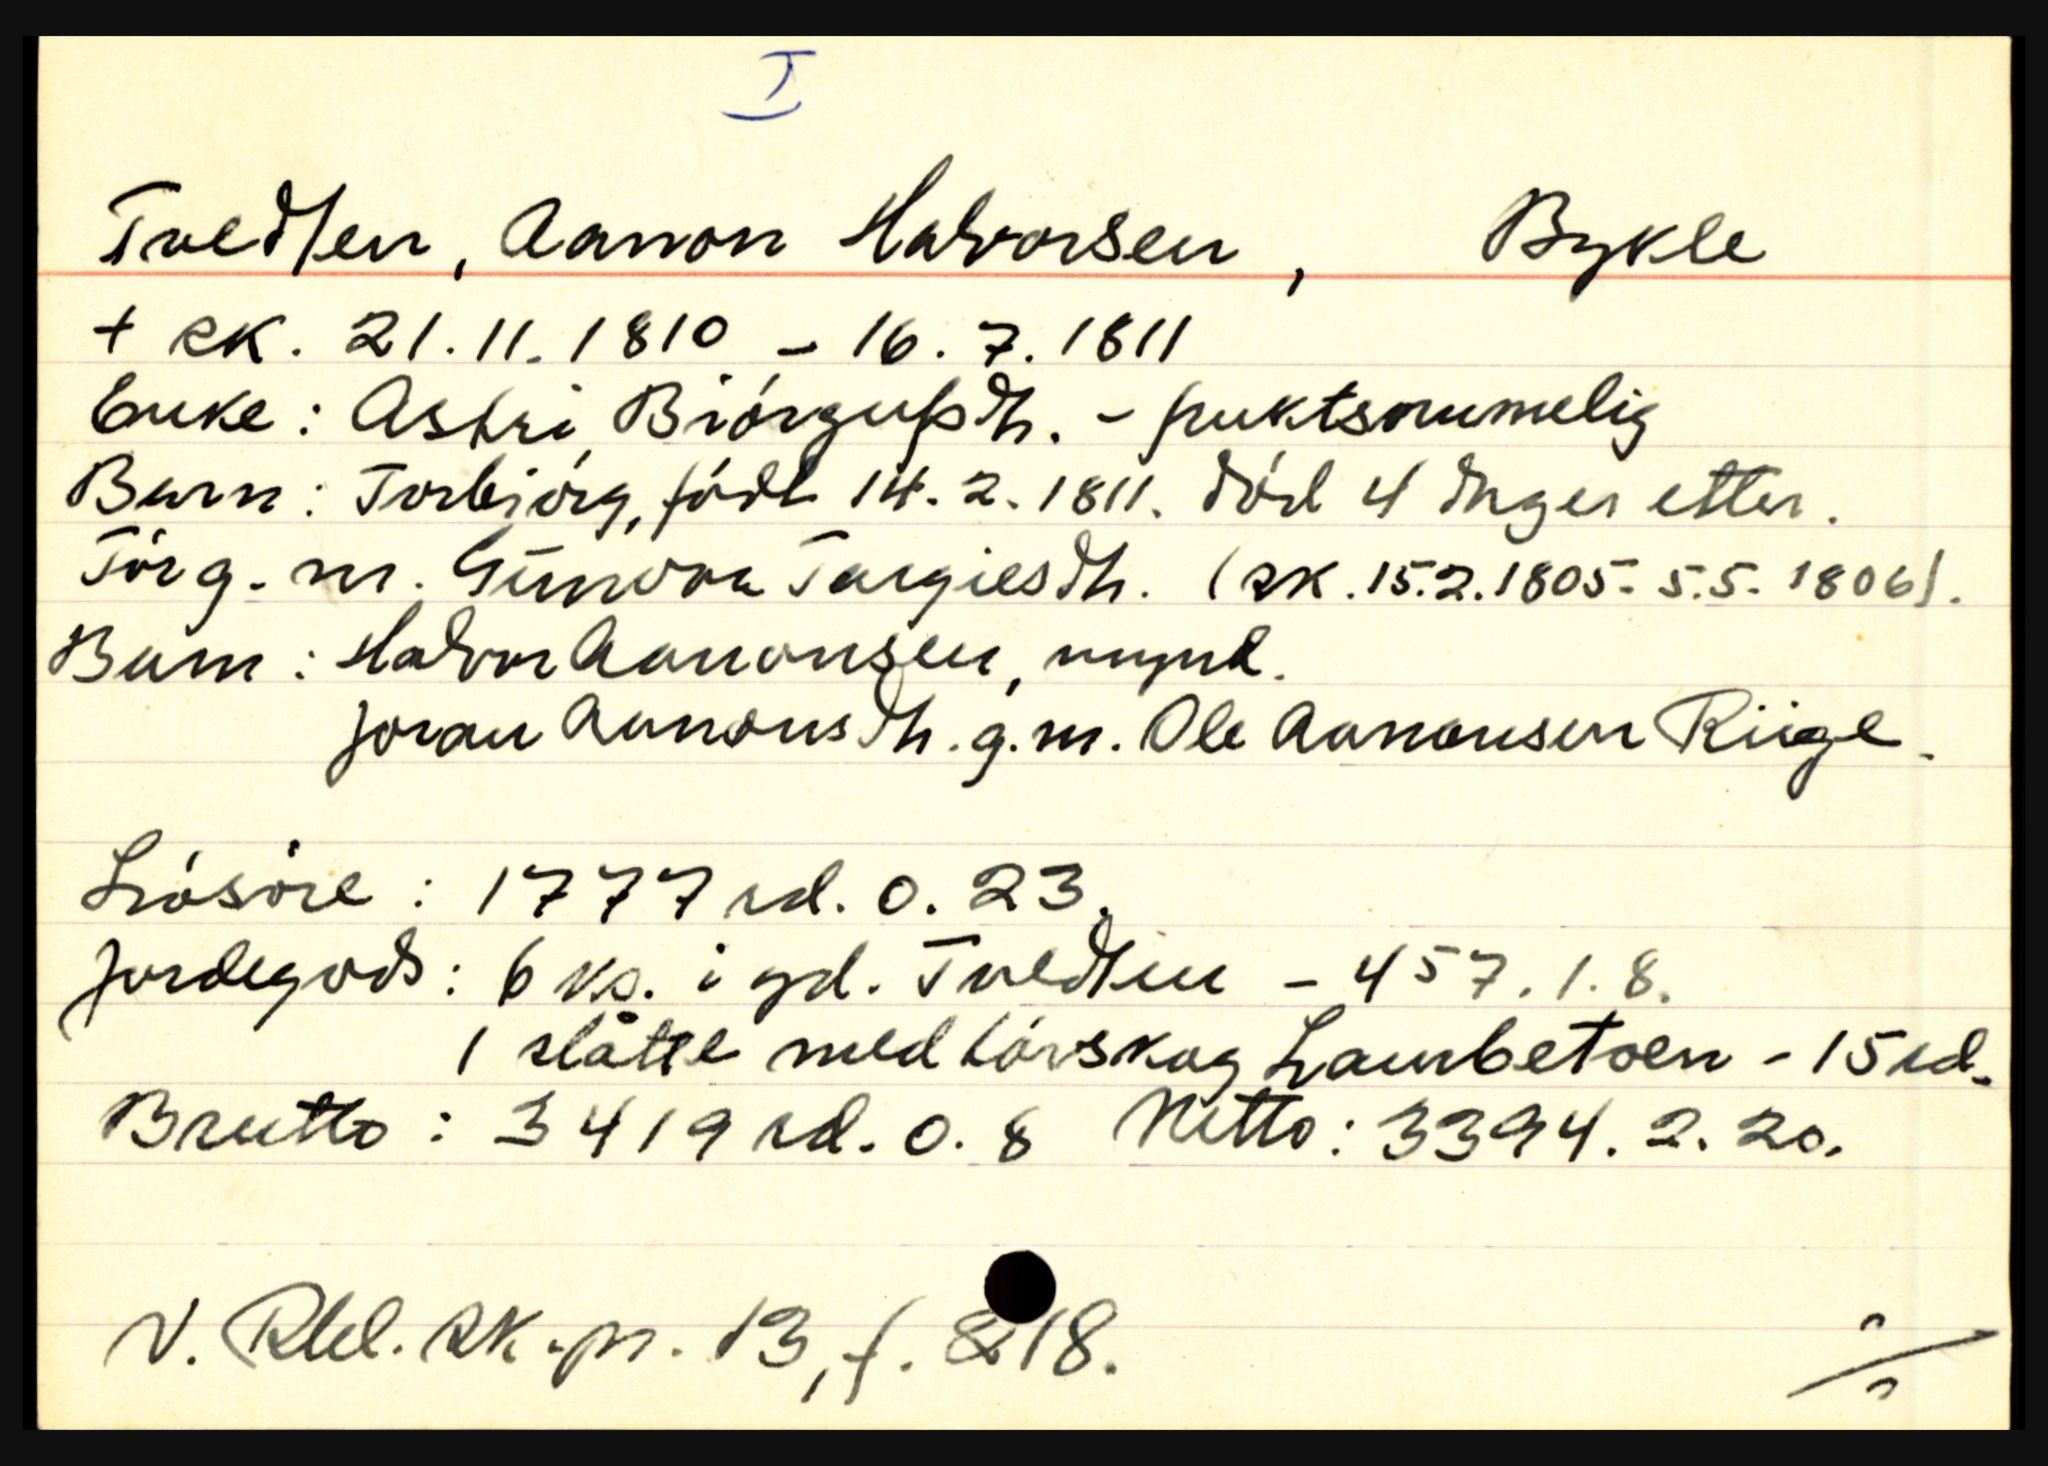 I
Tvedten, Aanon Halvorsen, Bykle
+ sk. 21.11.1810 - 16.7.1811
Enke: Astri Biórgufsdtr. - fruktsommelig
Barn: Torbiórg, födt 14.2.1811. död 4 dager etter.
För g. m. Gunvor Targiesdtr. (sk. 15.2.1805 - 5.5.1806).
Barn: Halvor Aanonsen, mynd.
Joran Aanonsdtr. g.m. Ole Aanonsen Riige.
Lösöre: 1777 rd. 0. 23.
Jordegods: 6 ks. i gd. Tvedten - 457.1.8.
1 slåtte med lövskog Laurbetoen - 15 rd.
Brutto: 3419 rd. 0. 8 Netto: 3394. 2. 20.
V. Rbl. sk.pr. 13, f. 818.